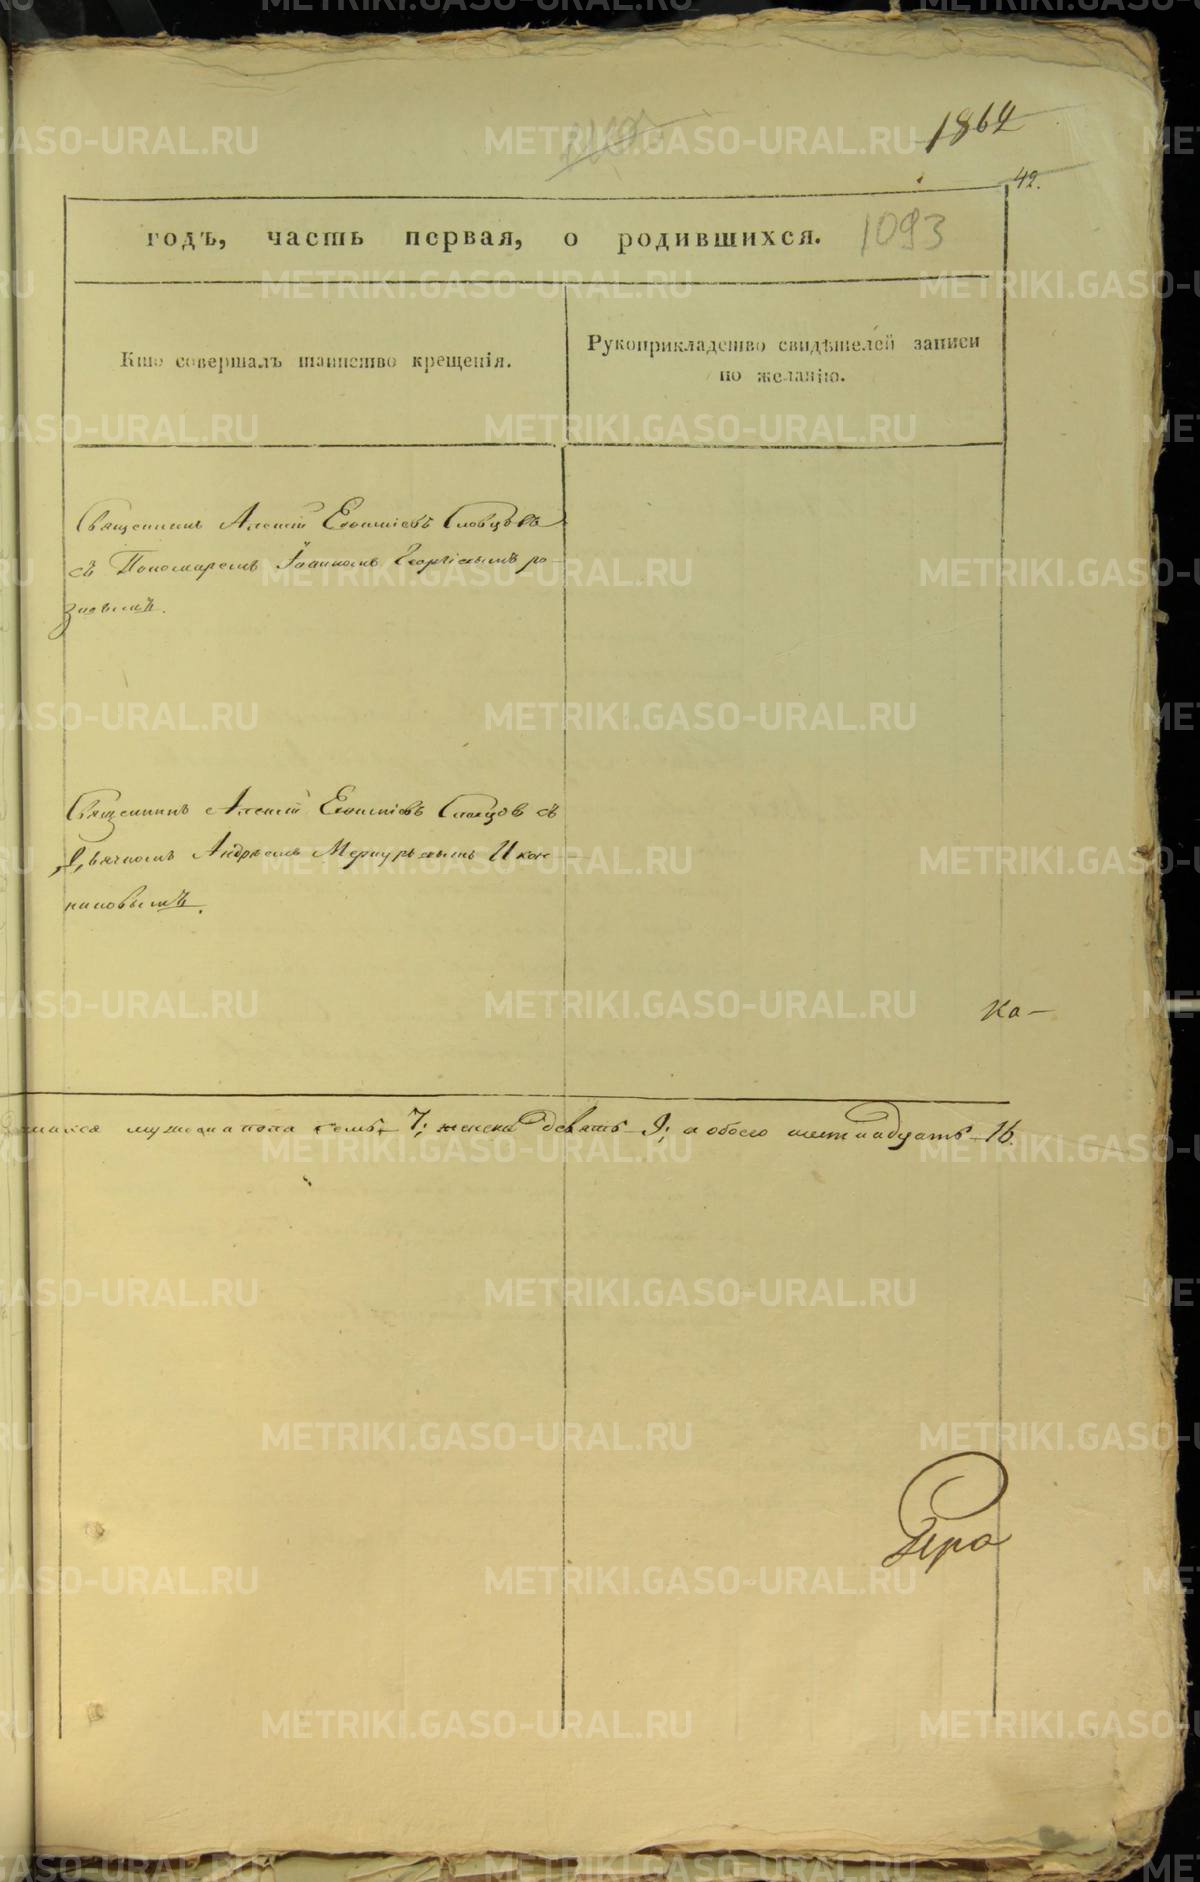 1864
42.
годъ, часть первая, о родившихся. 1093
Кто совершалъ таинство крещенія.
Рукоприкладство свидѣтелей записи
по желанію.
Священникъ Алексій Словцовъ
съ Пономаремъ Іоанномъ Георгіевымъ ро-
зновымъ.
Священникъ Алексій Словцов съ
Андреемъ Меркурьевымъ Икон
никовымъ.
Ка-
мужеска пола семь 7; женска девять 9; а обоего шестнадцать 16.
METRIKI.GASO-URAL.RU